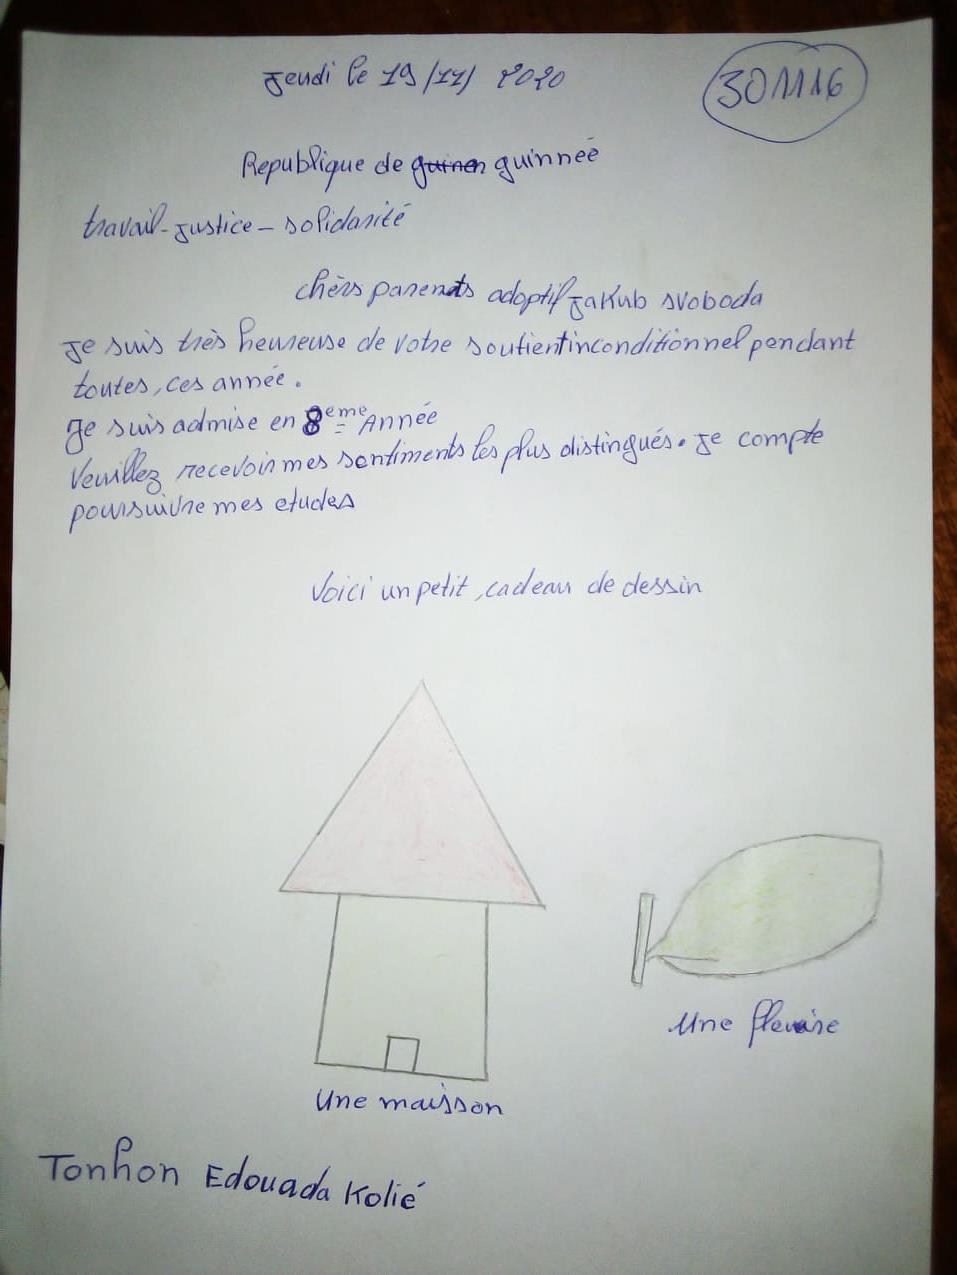 Jeudi le 19/11/ 2020
30 11116
Republique de guinnée
travail-justice-solidarité
chèrs parents adoptif jakub svoboda
Je suis très heureuse de votre soutient inconditionnel pendant
toutes, ces année.
Je suis admise en 8eme Année
Veuillez recevoir mes sentiments les plus distingués. Je compte
poursuivre mes etudes
Voici un petit, cadeau de dessin
Une
Une maisson
Tonhon Edouada Kolié